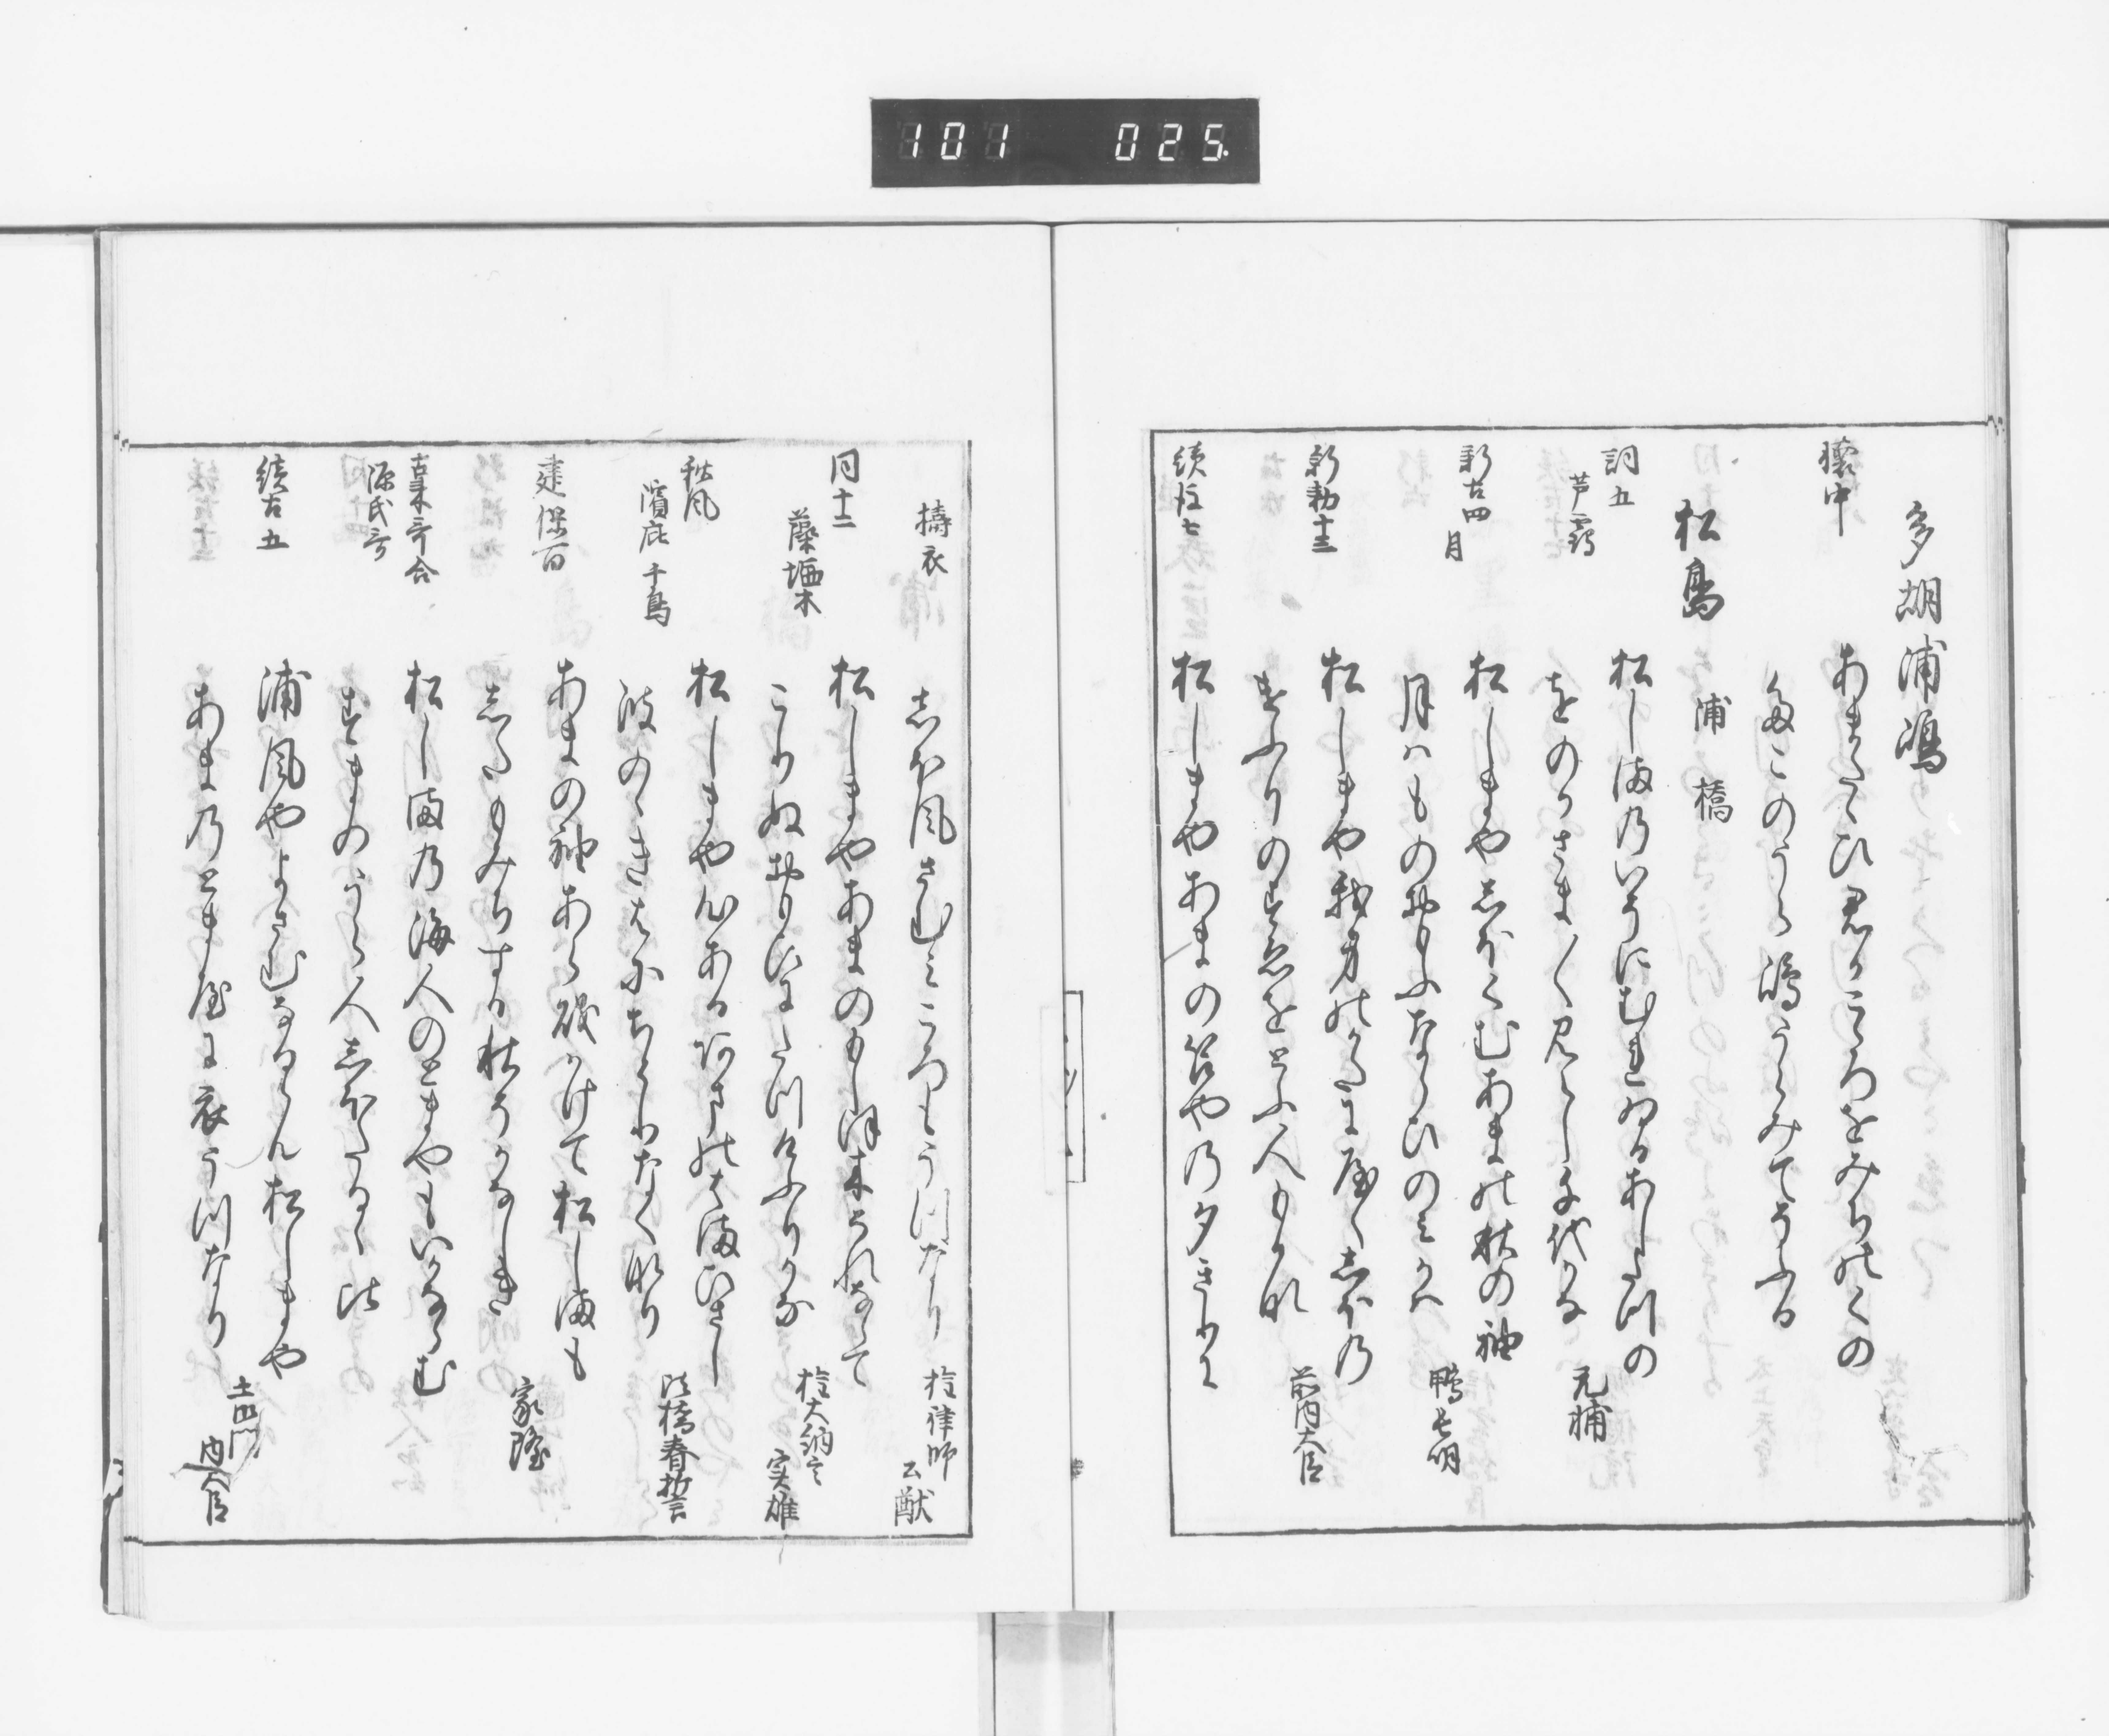 101 025
多胡浦嶋
懐中
あまたたひ君かこゝろをみちのくの
たこのうら嶋うらみてそふる
松島 浦 橋
詞五
芦霞
松しまのいそにむれゐるあしたつの
をのかさま〱見えし千代かな
元輔
新古四
月
松しまやしほくむあまの秋の袖
月はもの思ふならひのみかは
鴨長明
新勅十三
松しまや我身のかたにやくしほの
けふりのすゑをとふ人もかな
前内大臣
続後七
松しまやあまの苫やの夕きりに
擣衣
しほ風さむみころもうつなり
権律師
公猷
同十二
藻塩木
松しまやあまのもしほ木それならて
こりぬおもひにたつけふりかな
権大納言
実雄
秋風
濱庇 千鳥
松しまや心あるあまのはまひさし
波のゝきはにちとりなくなり
法橋春誓
建保百
あまの袖あら礒かけて松しまも
したもみちする秋そかなしき
家隆
古来哥合
源氏哥
松しまの海人のとまやもいかならむ
すまのうら人しほたるゝ比
続古五
浦風やよさむなるらん松しまや
あまのとま屋に衣うつなり
土御門
内大臣